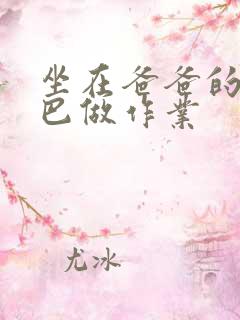 坐在爸爸的
巴做作业
尤冰